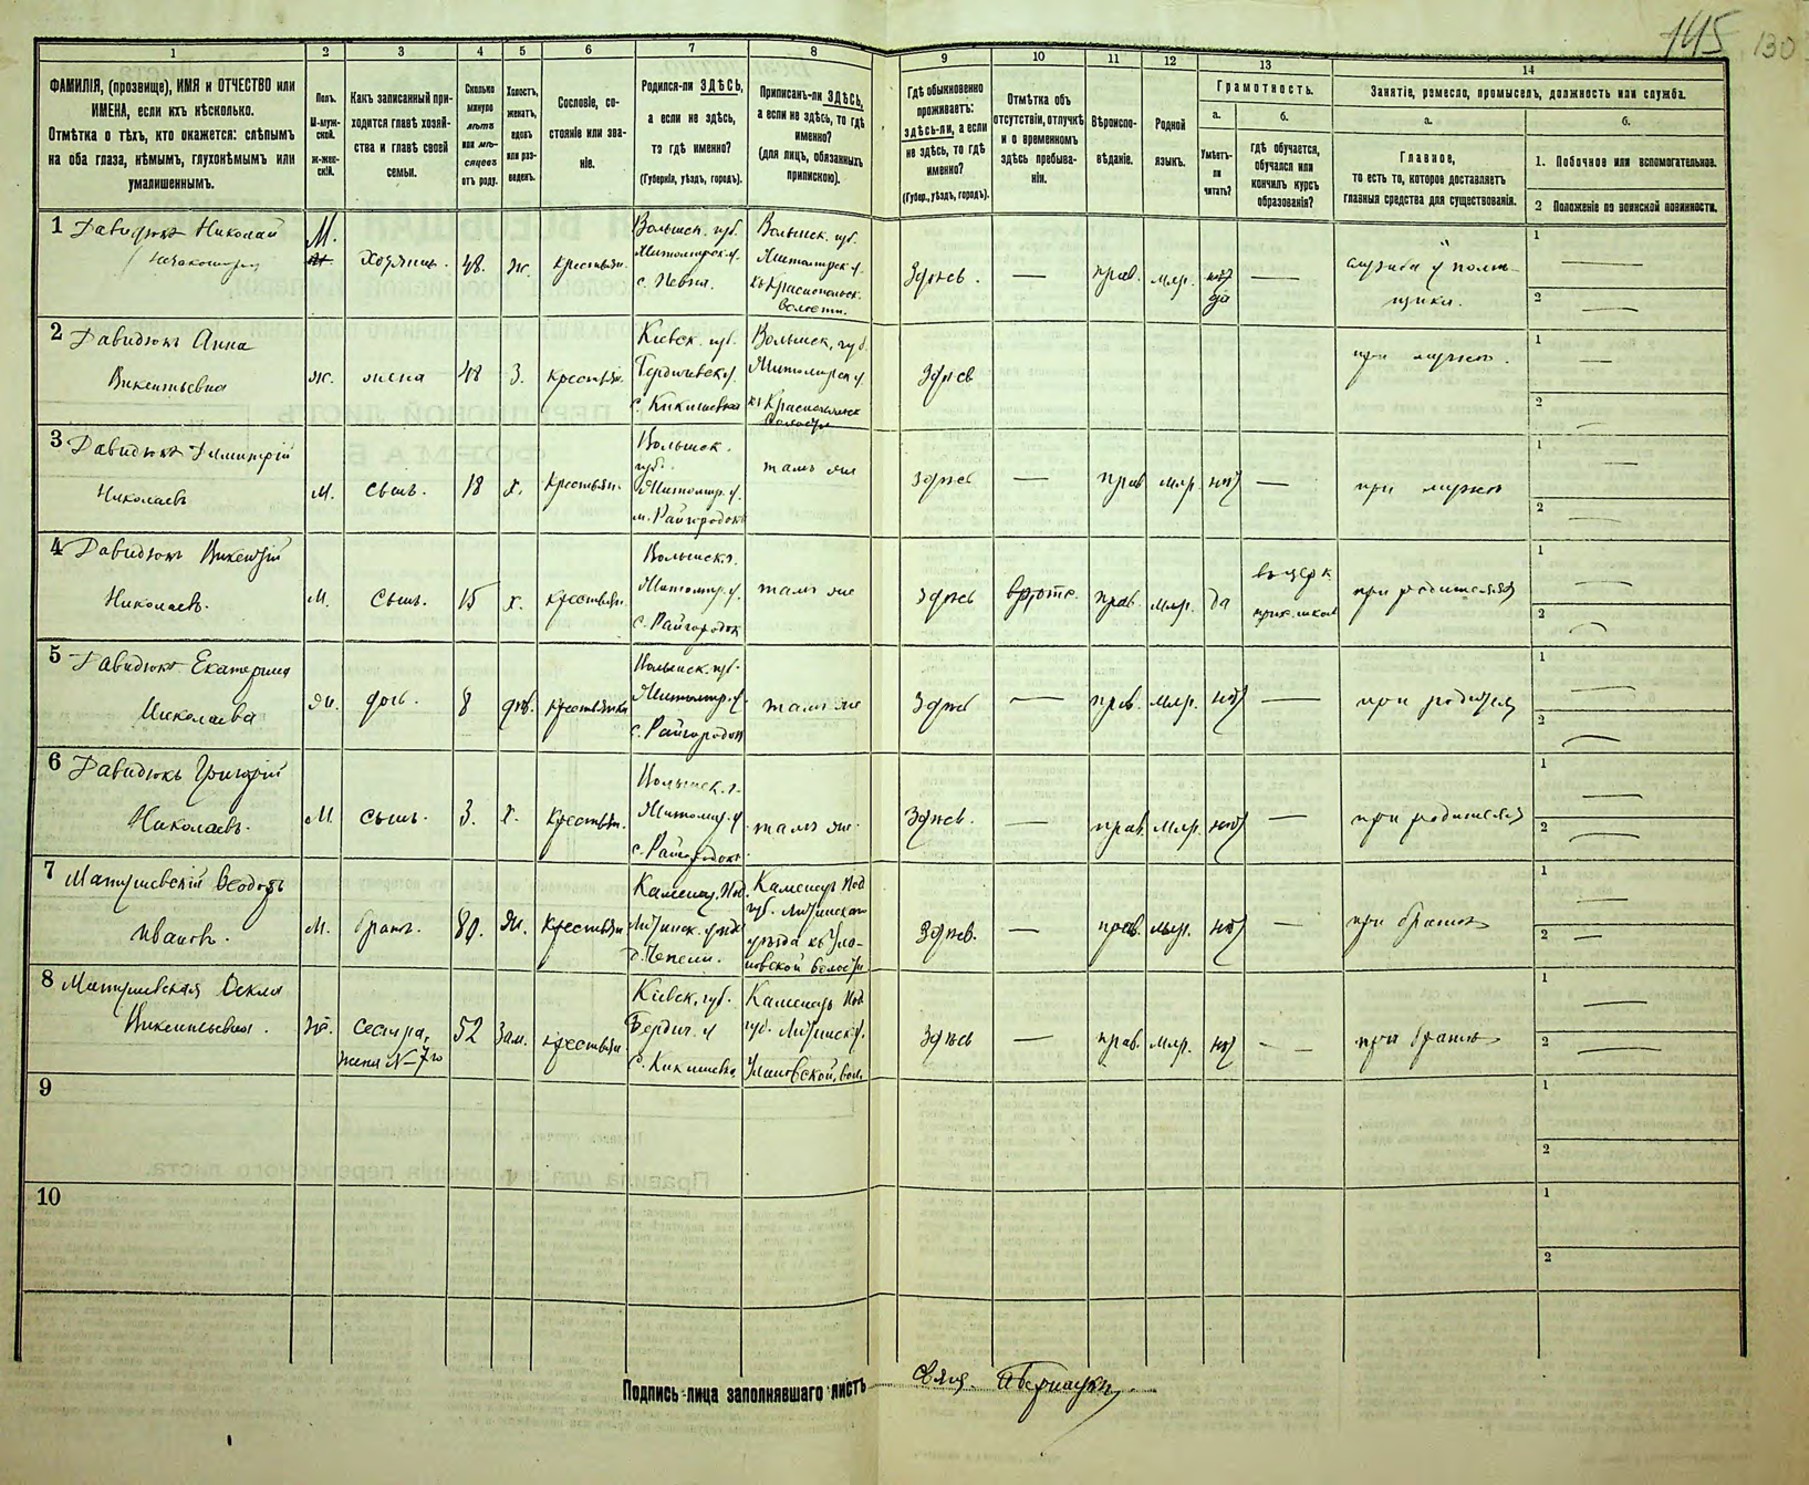 145 130
1 2 3 4 5 6 7 8 9 10 11 12 13 14
ФАМИЛІЯ, (прозвище), ИМЯ и ОТЧЕСТВО или
ИМЕНА, если ихъ нѣсколько.
Отмѣтка о тѣхъ, кто окажется: слѣпымъ
на оба глаза, нѣмымъ, глухонѣмымъ или
умалишеннымъ.
Полъ.
М-муж-
ской.
Ж-жен-
скій.
Какъ записанный при-
ходится главѣ хозяй-
ства и главѣ своей
семьи.
Сколько
минуло
лѣтъ
или мѣ-
сяцевъ
отъ роду.
Холостъ,
женатъ,
вдовъ
или раз-
веденъ.
Сословіе, со-
стояніе или зва-
ніе.
Родился-ли ЗДѢСЬ,
а если не здѣсь,
то гдѣ именно?
(Губернія, уѣздъ, городъ).
Приписанъ-ли ЗДѢСЬ,
а если не здѣсь, то гдѣ
именно?
(для лицъ, обязанныхъ
припискою).
Гдѣ обыкновенно
проживаетъ:
здѣсь-ли, а если
не здѣсь, то гдѣ
именно?
(Губер., уѣздъ, городъ).
Отмѣтка объ
отсутствіи, отлучкѣ
и о временномъ
здѣсь пребыва-
ніи.
Вѣроиспо-
вѣданіе.
Родной
языкъ.
Грамотность.
а.
Умѣетъ-
ли
читать?
б.
гдѣ обучается,
обучался или
кончилъ курсъ
образованія?
Занятіе, ремесло, промыселъ, должность или служба.
а.
Главное,
то есть то, которое доставляетъ
главныя средства для существованія.
б.
1. Побочное или вспомогательное.
2 Положеніе по воинской повинности.
1 Давидюкъ Николай
М.
хозяинъ.
48.
ж.
крестьян.
Волынск. губ.
Житомирск. у.
Волынск. губ.
Житомирск. у.
къ Краснопольск.
волости.
Здѣсь. —
прав.
млр.
нѣт
да
—
служба у
1 —
2 —
2 Давидюкъ Анна
Викентьевна
ж.
жена
48
З.
крестьян.
Кіевск. губ.
Бердичевск. у.
с. Кикишевка
Волынск. губ.
Житомирск. у.
къ Краснопольск
волости
Здѣсь
при мужѣ.
1 —
2 —
3 Давидюкъ Димитрій
Николаевъ
М.
сынъ.
18
х.
крестьян.
Волынск.
губ.
Житомир. у.
м. Райгородокъ
тамъ же
здѣсь —
прав
млр.
нѣт
—
при мужѣ
1 —
2 —
4 Давидюкъ Викентій
Николаевъ.
М.
сынъ.
15
х.
крестьян.
Волынск. г.
Житомир. у.
с. Райгородок
тамъ же
здѣсь
прав.
млр.
да
въ церк.
прих. школ
при родителях
1 —
2 —
5 Давидюкъ Екатерина
Николаева
ж.
дочь.
8
дѣв.
крестьянка
Волынск. губ.
Житомир. у.
с. Райгородок
тамъ же
Здѣсь —
прав.
млр.
нѣт
—
при родителях
1 —
2 —
6 Давидюкъ Григорій
Николаевъ.
М.
сынъ.
3.
х.
крестьян.
Волынск. г.
Житомир. у
с. Райгородокъ
тамъ же
Здѣсь. —
прав.
млр.
нѣт
—
при родителях
1 —
2 —
7 Матушевскій Ѳеодоръ
Ивановъ.
М.
братъ.
80.
Ж.
крестьян
Каменец. Под.
Литинск. уѣзд.
д. Чепели.
Каменецъ Под
губ. Литинскаго
уѣзда къ Ула-
новской волости
Здѣсь. —
прав.
млр.
нѣт
—
при братѣ
1 —
2 —
8 Матушевская Ѳекла
Викентьевна.
ж.
сестра,
жена №7го
52
зам.
крестьян.
Кіевск. губ.
Бердич. у
с. Кикишевка
Каменецъ Под
губ. Литинск. у.
Улановской вол.
Здѣсь —
прав.
млр.
нѣт
—
при братѣ
1 —
2 —
9
1
2
10
1
2
Подпись лица заполнявшаго листъ